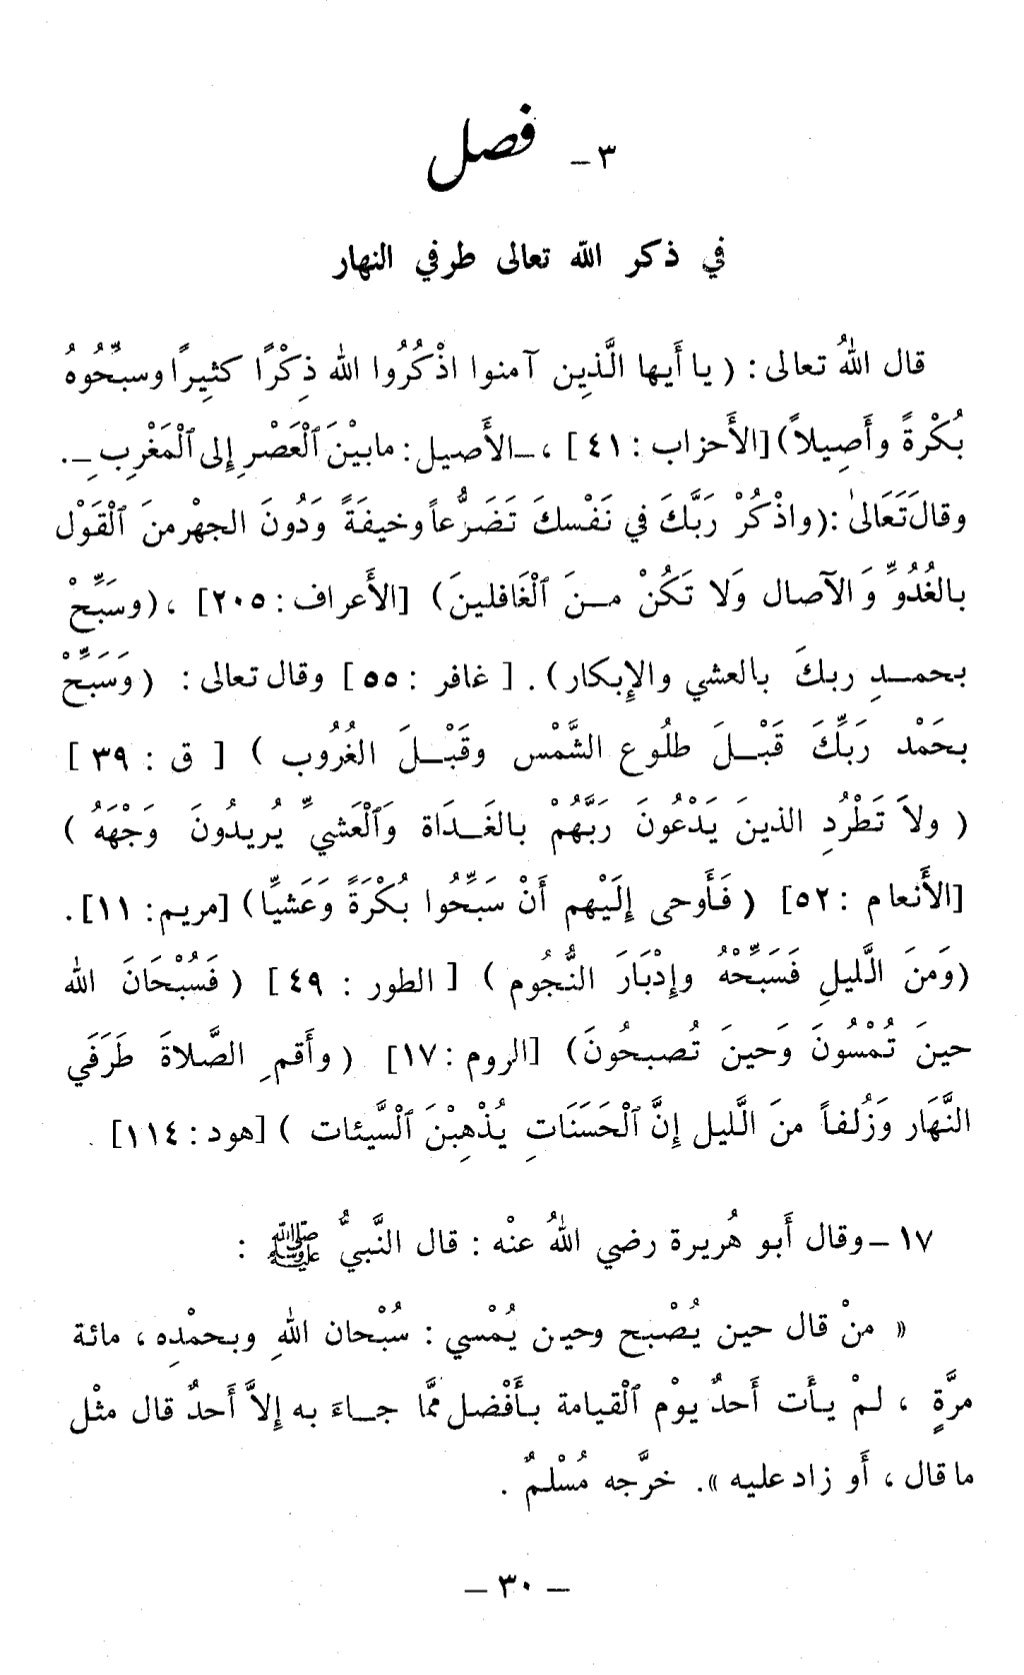 ٣ – فصل
في ذكر الله تعالى طرفي النهار
قال اللهُ تعالى : ( يا أَيها الَّذِين آمنوا اذْكُرُوا الله ذِكْرًا كثيرًا وسبِّحُوهُ
بُكْرةً وأَصِيلاً) [الأَحزاب : ٤١] ، – الأَصيل : مابيْنَ ٱلْعَصْرِ إِلى ٱلْمَغْرِبِ – .
وقالَ تَعَالىٰ : (واذْكُرْ رَبَّكَ في نَفْسكَ تَضَرُّعاً وخيفَةً وَدُونَ الجهْر منَ ٱلْقَوْل
بالغُدُوِّ وَ الآصال وَلا تَكُنْ مـنَ ٱلْغَافلينَ) [الأَعراف : ٢٠٥] ، (وسَبِّحْ
بحمـدِ ربكَ بالعشي والإِبكار) . [ غافر : ٥٥] وقال تعالى : ( وَسَبِّحْ
بحَمْد رَبِّكَ قَبْـلَ طلُوع الشَّمْس وقَبْـلَ الغُرُوب ) [ ق : ٣٩ ]
( ولاَ تَطْرُدِ الذينَ يَدْعُونَ رَبَّهُمْ بالغَـدَاة وَٱلْعَشيِّ يُريدُونَ وَجْهَهُ )
[الأَنعام : ٥٢] ( فَأَوحى إِلَيْهم أَنْ سَبِّحُوا بُكْرَةً وَعَشيًّا) [مريم : ١١] .
(وَمنَ الَّليلِ فَسَبِّحْهُ وإِدْبَارَ النُّجُوم ) [ الطور : ٤٩ ] ( فَسُبْحَانَ الله
حينَ تُمْسُونَ وَحينَ تُصبحُونَ) [الروم : ١٧] ( وأَقمِ الصَّلاةَ طَرَفَي
النَّهَار وَزُلفاً منَ الَّليل إِنَّ ٱلْحَسَنَاتِ يُذْهِبْنَ ٱلْسَّيئات ) [هود : ١١٤] .
١٧ – وقال أَبو هُريرة رضي اللهُ عنْه : قال النَّبيُّ ﷺ :
« منْ قال حين يُصْبح وحين يُمْسي : سُبْحان اللهِ وبحمْدِه ، مائة
مرَّةٍ ، لـمْ يـأَت أَحدٌ يوْم ٱلْقيامة بـأَفْضل ممَّا جـاءَ به إِلاَّ أَحدٌ قال مثْل
ما قال ، أَو زاد عليه » . خرَّجه مُسْلمٌ .
– ٣٠ –